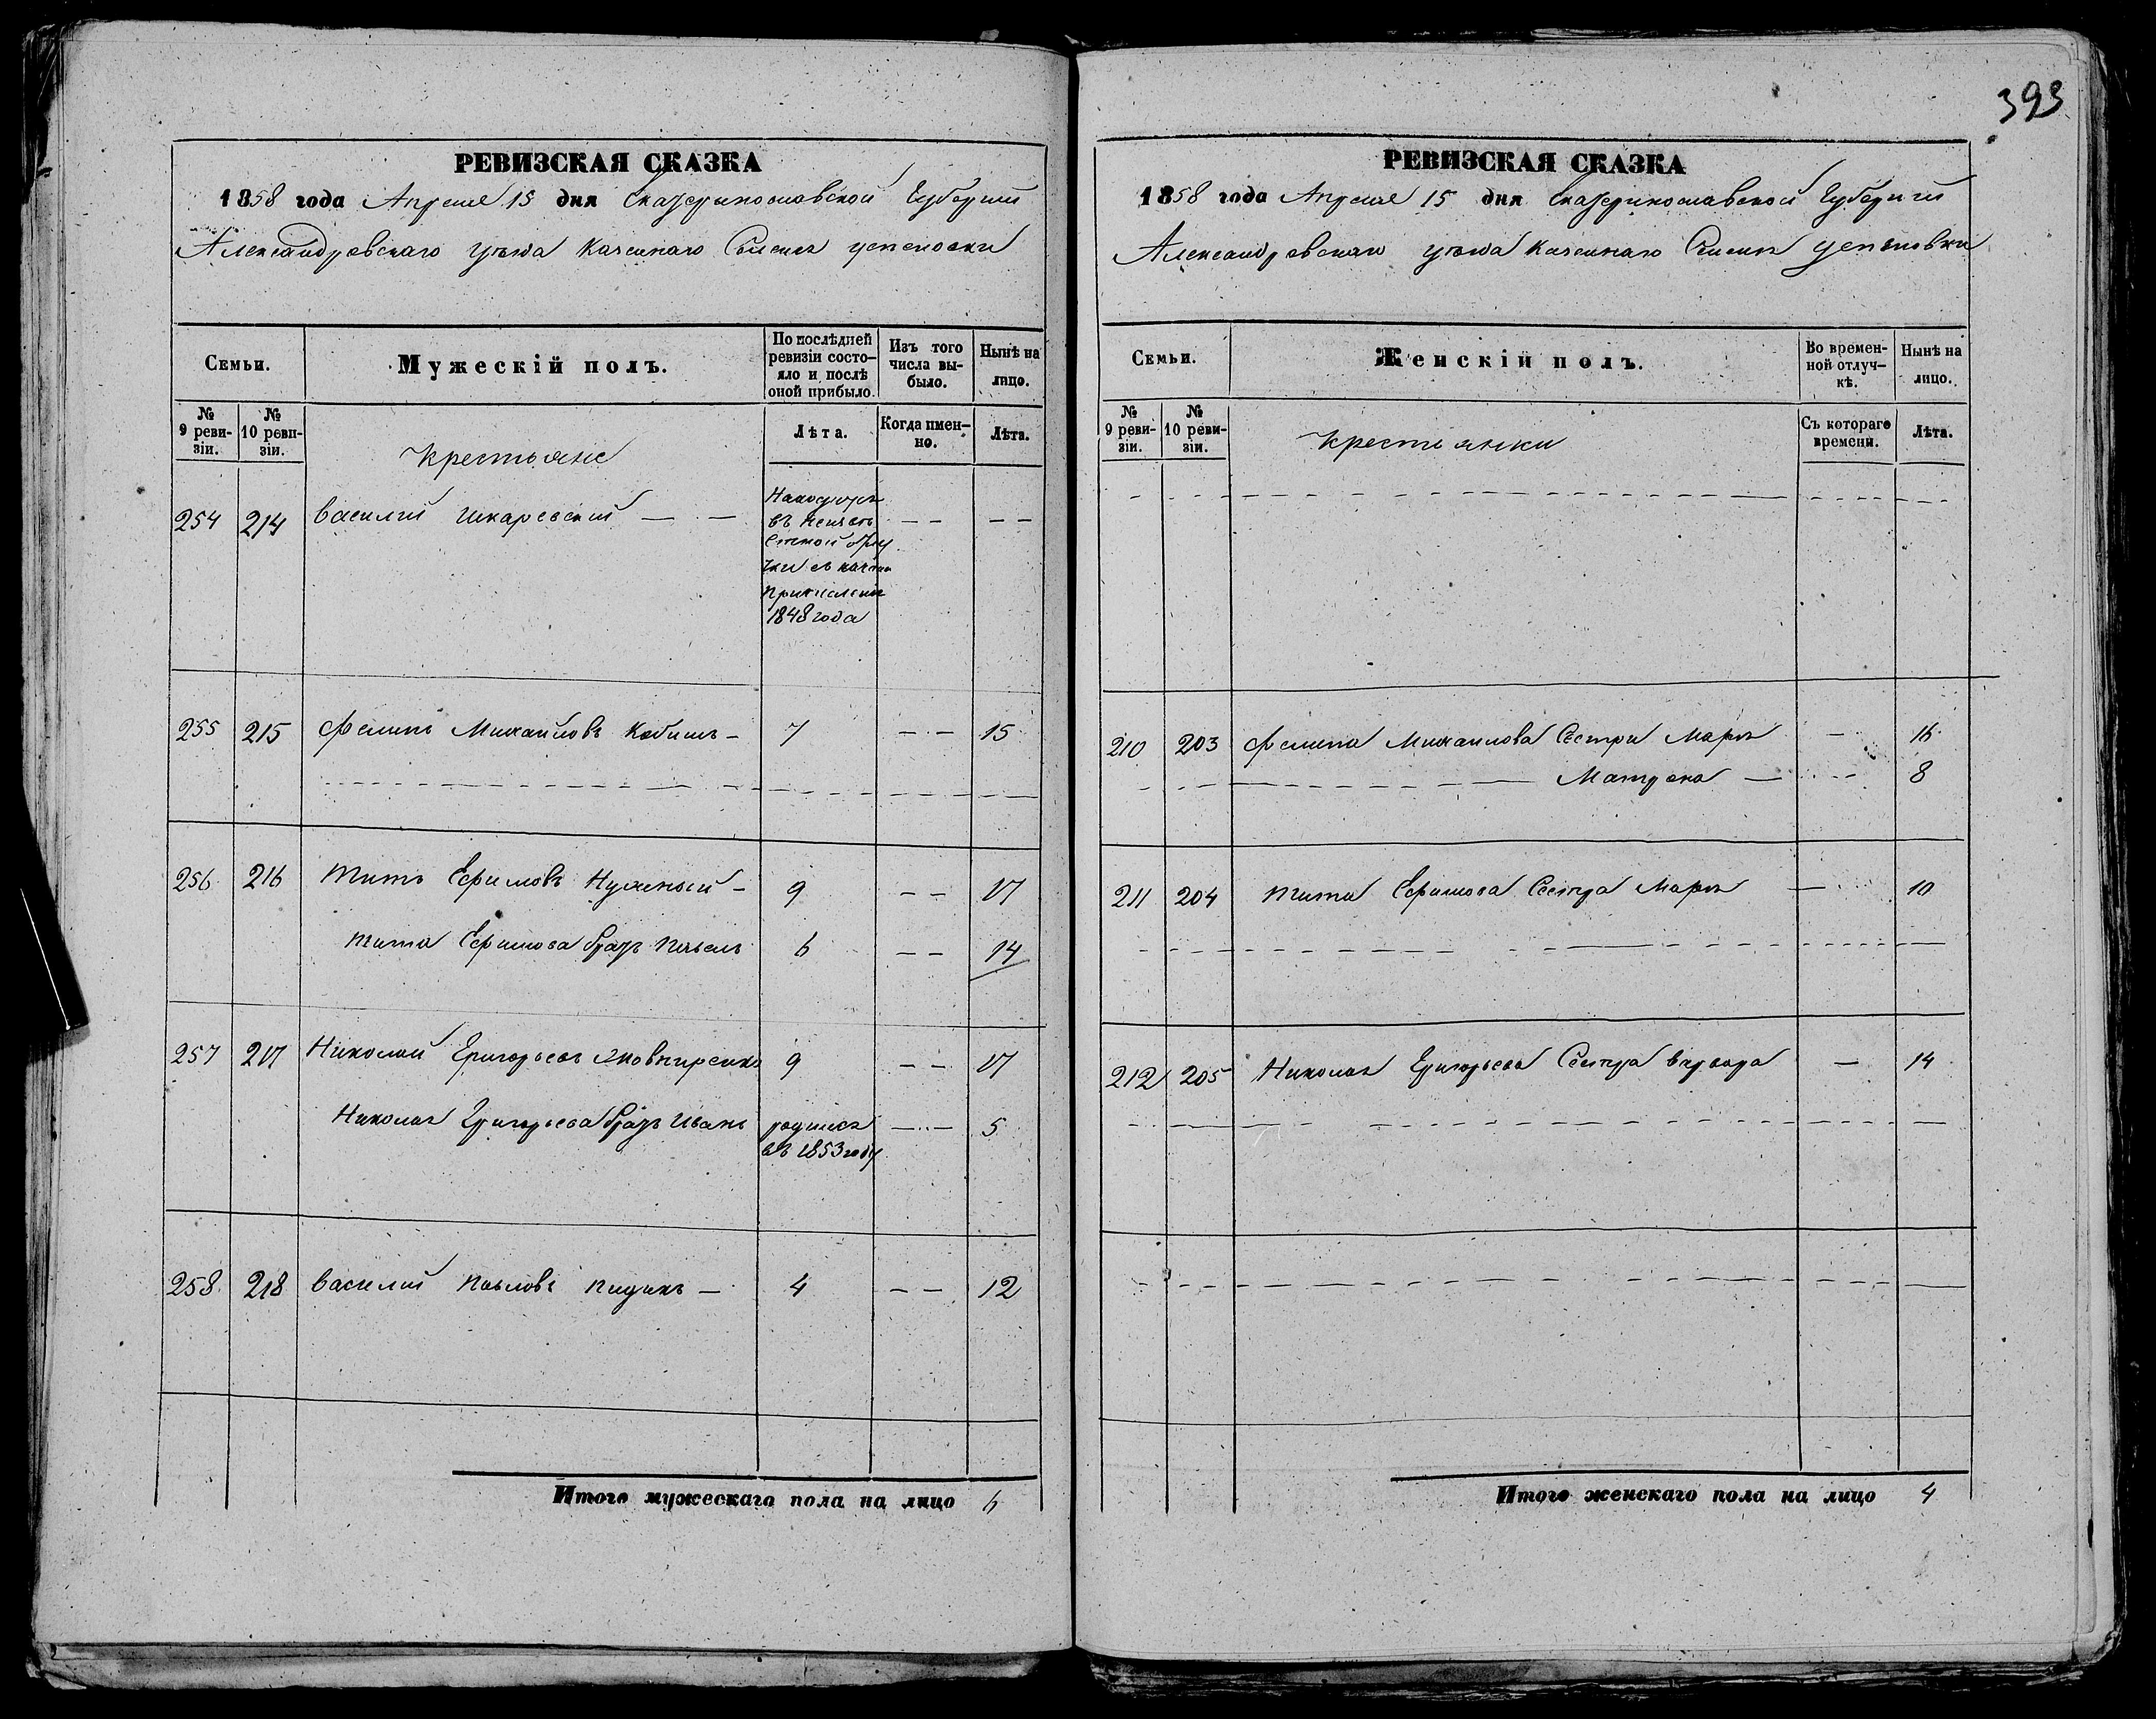 РЕВИЗСКАЯ СКАЗКА
1858 года Апреля 15 дня Екатеринославской Губернии
Александровскаго уѣзда Казеннаго Селенія
Семьи.
Мужескій полъ.
По послѣдней ревизіи состо-
яло и послѣ
оной прибыло.
Изъ того
числа вы-
было.
Нынѣ на
лицо.
№
9 реви-
зіи.
№
10 реви-
зіи.
Крестьяне
Лѣта.
Когда имен-
но.
Лѣта.
254 214 Василий Шкаревский — — — — —
Находится
въ неизвѣ
стной отлу
чки съ
причисления
1848 года
255 215 Филипъ Михайловъ 7 — — 15
256 216 Титъ Ефимовъ Нужный — 9 — — 17
Тита Ефимова братъ Павелъ 6 — — 14
257 217 Николай Григорьевъ 9 — — 17
Николая Григорьева братъ Иванъ родился — — 5
въ 1853 году
258 218 Василий Павловъ — 4 — — 12
Итого мужескаго пола на лицо 6
393
РЕВИЗСКАЯ СКАЗКА
1858 года Апреля 15 дня Екатеринославской Губернии
Александровскаго уѣзда Казеннаго Селенія
Семьи.
Женскій полъ.
Во времен-
ной отлуч-
кѣ.
Нынѣ на
лицо.
№
9 реви-
зіи.
№
10 реви-
зіи.
Крестьянки
Съ котораго
времени.
Лѣта.
210 203 Филипа Михаилова Сестри Марія — 16
Матрона — 8
211 204 Тита Ефимова Сестра Марія — 10
212 205 Николая Григорьева Сестра Варвара — 14
Итого женскаго пола на лицо 4